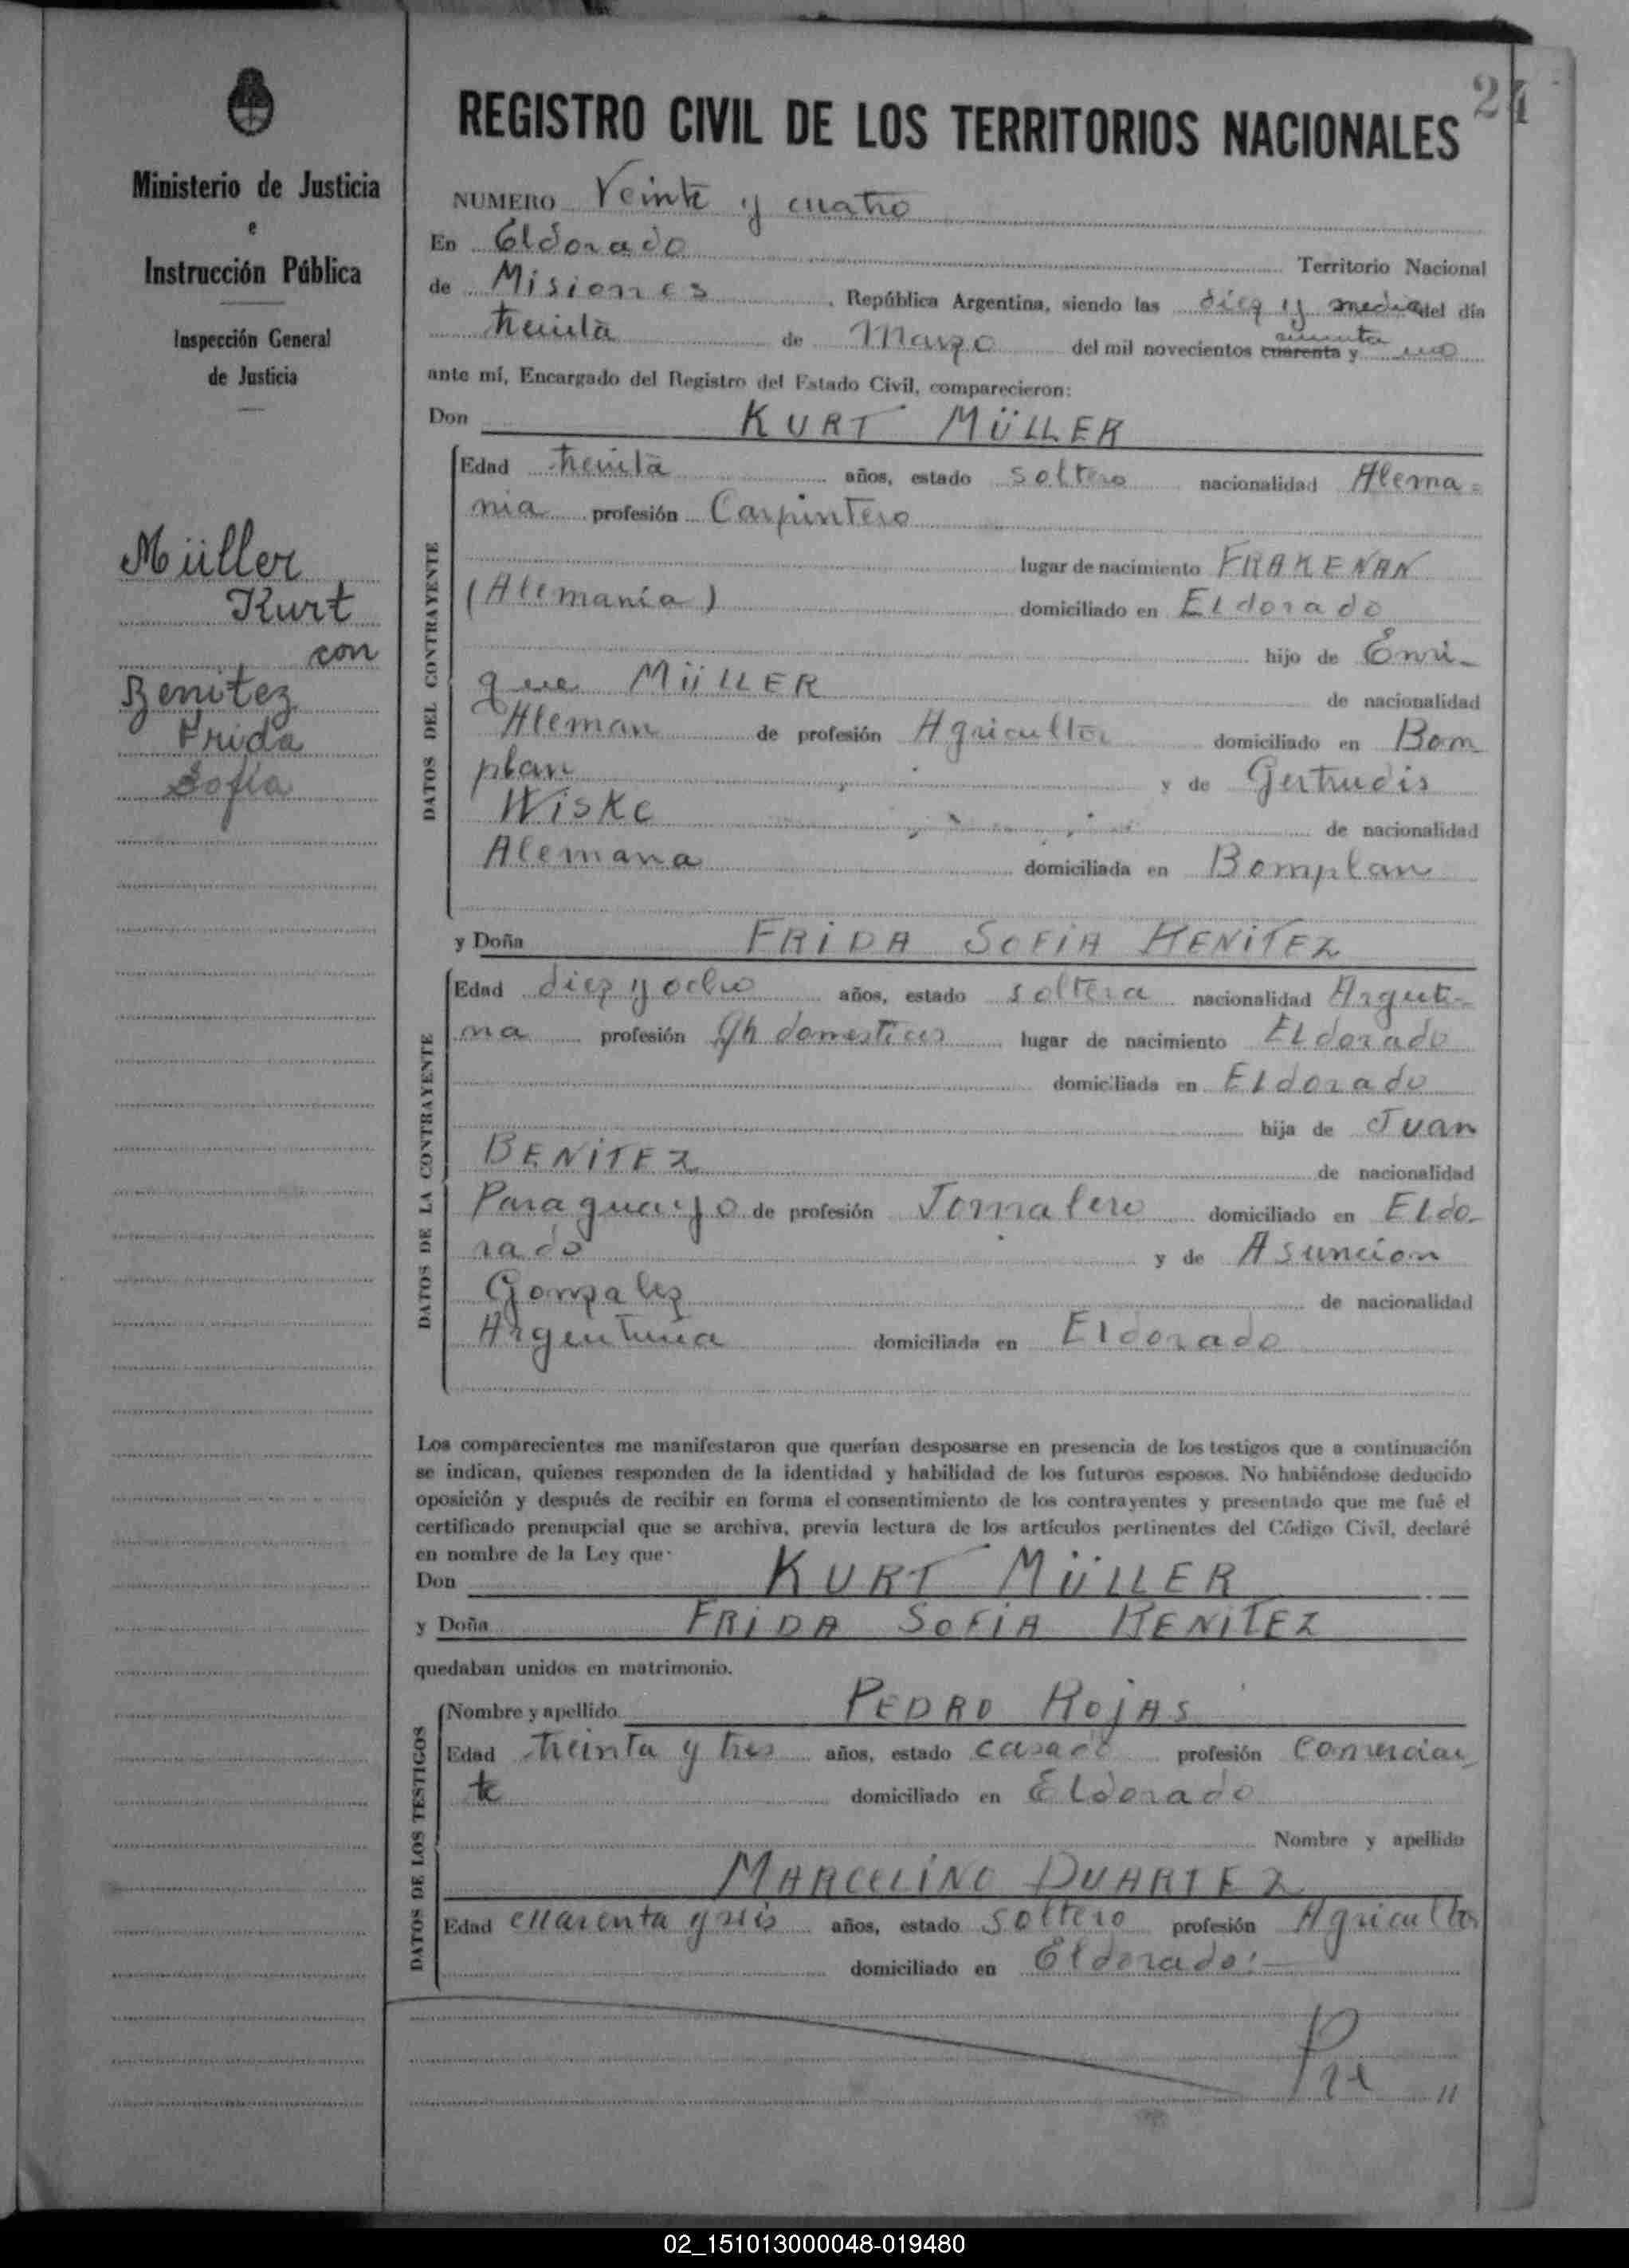 24
REGISTRO CIVIL DE LOS TERRITORIOS NACIONALES
Ministerio de Justicia
e
Instrucción Pública
Inspección General
de Justicia
Müller
Kurt
con
Benitez
Frida
Sofía
NUMERO Veinte y cuatro
En Eldorado Territorio Nacional
de Misiones, República Argentina, siendo las diez y media del día
treinta de Marzo del mil novecientos cuarenta y cincuenta uno
ante mí, Encargado del Registro del Estado Civil, comparecieron:
Don KURT MÜLLER
DATOS DEL CONTRAYENTE
Edad treinta años, estado soltero nacionalidad Alema=
nia profesión Carpintero
lugar de nacimiento FRAKENAN
(Alemania) domiciliado en Eldorado
hijo de Enri-
que MÜLLER de nacionalidad
Aleman de profesión Agricultor domiciliado en Bom
plan y de Gertrudis
Wiske de nacionalidad
Alemana domiciliada en Bomplan
y Doña FRIDA SOFIA BENITEZ
DATOS DE LA CONTRAYENTE
Edad diez y ocho años, estado soltera nacionalidad Argenti-
na profesión Qh domesticos lugar de nacimiento Eldorado
domiciliada en Eldorado
hija de Juan
BENITEZ de nacionalidad
Paraguayo de profesión Jornalero domiciliado en Eldo-
rado y de Asuncion
Gonzalez de nacionalidad
Argentina domiciliada en Eldorado
Los comparecientes me manifestaron que querían desposarse en presencia de los testigos que a continuación
se indican, quienes responden de la identidad y habilidad de los futuros esposos. No habiéndose deducido
oposición y después de recibir en forma el consentimiento de los contrayentes y presentado que me fué el
certificado prenupcial que se archiva, previa lectura de los artículos pertinentes del Código Civil, declaré
en nombre de la Ley que:
Don KURT MÜLLER
y Doña FRIDA SOFIA BENITEZ
quedaban unidos en matrimonio.
DATOS DE LOS TESTIGOS
Nombre y apellido PEDRO ROJAS
Edad treinta y tres años, estado casado profesión Comercian
te domiciliado en Eldorado
Nombre y apellido
MARCELINO DUARTEZ
Edad cuarenta y seis años, estado soltero profesión Agricultor
domiciliado en Eldorado:—
02_151013000048-019480